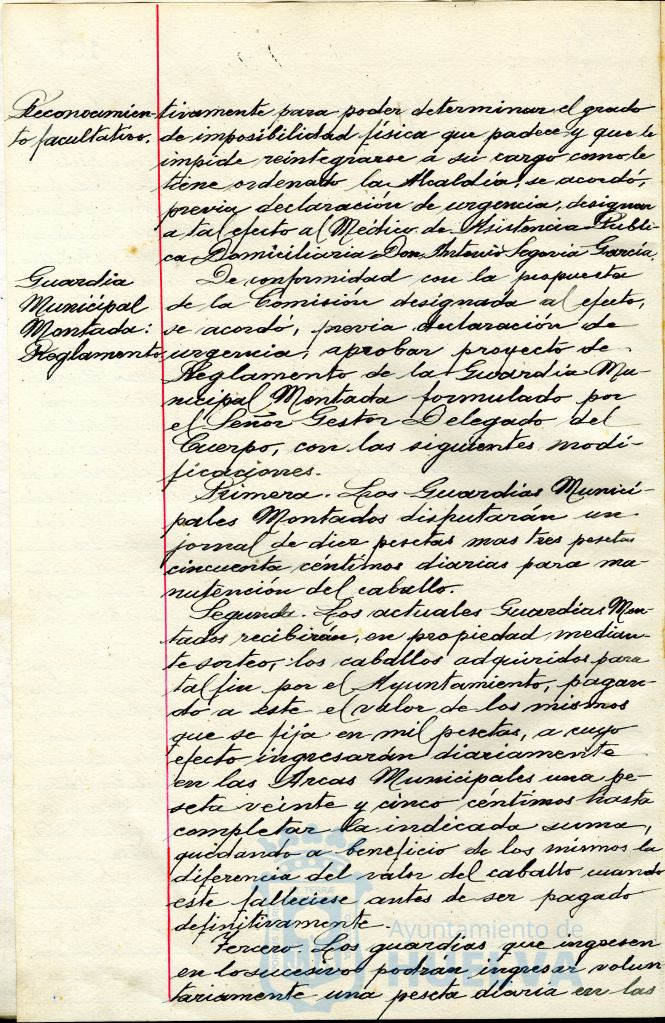 Reconocimien-
to facultativo.
tivamente para poder determinar el grado
de imposibilidad física que padece y que le
impide reintegrarse a su cargo como le
tiene ordenado la Alcaldía, se acordó,
previa declaración de urgencia, designar
a tal efecto al Médico de Asistencia Públi-
ca Domiciliaria Don Antonio Segovia García.
Guardia
Municipal
Montada:
Reglamento
De conformidad con la propuesta
de la Comisión designada al efecto,
se acordó, previa declaración de
urgencia, aprobar proyecto de
Reglamento de la Guardia Mu-
nicipal Montada formulado por
el Señor Gestor Delegado del
Cuerpo, con las siguientes modi-
ficaciones.
Primera. Los Guardias Munici-
pales Montados disfrutarán un
jornal de diez pesetas mas tres pesetas
cincuenta céntimos diarias para ma-
nutención del caballo.
Segunda. Los actuales Guardias Mon-
tados recibirán, en propiedad median-
te sorteo, los caballos adquiridos para
tal fin por el Ayuntamiento, pagan-
do a este el valor de los mismos
que se fija en mil pesetas, a cuyo
efecto ingresarán diariamente
en las Arcas Municipales una pe-
seta veinte y cinco céntimos hasta
completar la indicada suma,
quedando a beneficio de los mismos la
diferencia del valor del caballo cuando
este falleciese antes de ser pagado
definitivamente.
Tercero. Los guardias que ingresen
en lo sucesivo podrán ingresar volun-
tariamente una peseta diaria en las
Ayuntamiento de
HUELVA